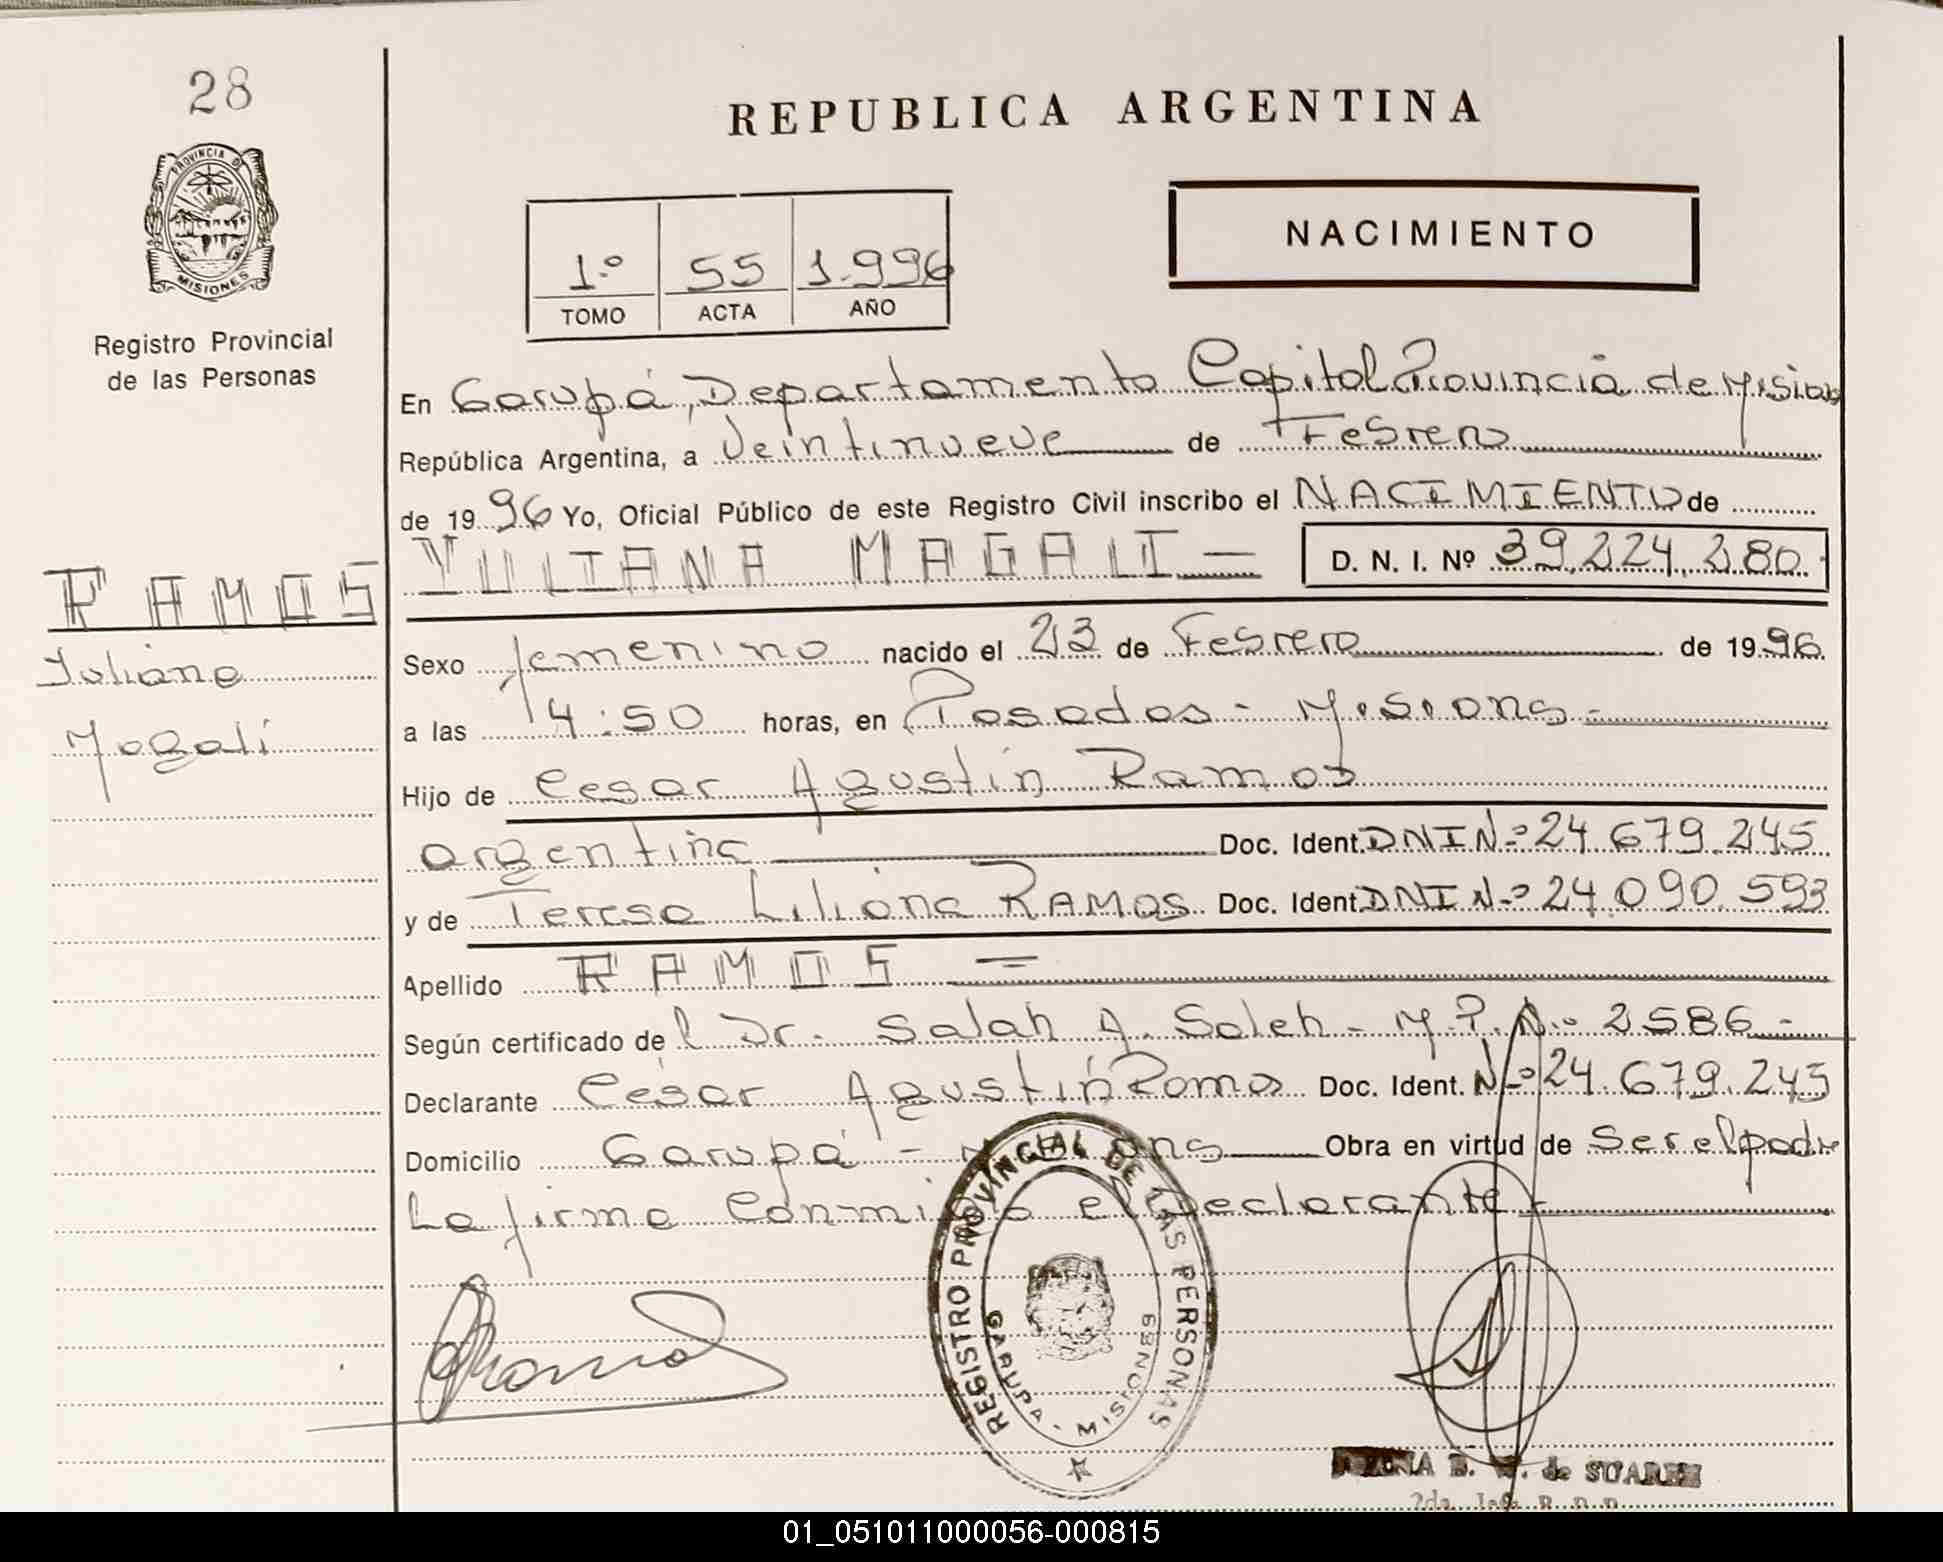 28
PROVINCIA DE
MISIONES
Registro Provincial
de las Personas
REPUBLICA ARGENTINA
NACIMIENTO
1.º 55 1.996
TOMO ACTA AÑO
En Garupá, Departamento Capital Provincia de Misiones
República Argentina, a Veintinueve de Febrero
de 1996 Yo, Oficial Público de este Registro Civil inscribo el NACIMIENTO de
YULIANA MAGALI — D. N. I. Nº 39.224.280.
RAMOS
Yuliana
Magali
Sexo femenino nacido el 23 de Febrero de 1996.
a las 14:50 horas, en Posadas - Misiones -
Hijo de Cesar Agustín Ramos
argentina Doc. Ident. DNI Nº 24.679.245
y de Teresa Liliana RAMOS Doc. Ident. DNI Nº 24.090.593
Apellido RAMOS =
Según certificado de l Dr. Salah A. Saleh - M.P. Nº 2586 -
Declarante César Agustín Ramos Doc. Ident. Nº 24.679.245
Domicilio Garupá - Misiones Obra en virtud de Ser el padre
La firma Conmigo el Declarante -
REGISTRO PROVINCIAL DE LAS PERSONAS
GARUPA - MISIONES
de SUAREZ
01_051011000056-000815